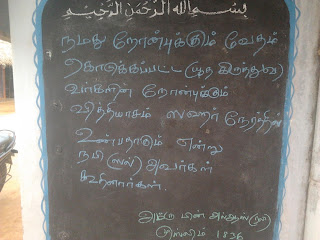 بِسْمِ اللهِ الرَّحْمٰنِ الرَّحِيْمِ
நமது நோன்புக்கும் வேதம்
கொடுக்கப்பட்ட (யூத கிருத்துவ)
வர்களின் நோன்புக்கும்
வித்தியாசம் ஸஹர் நேரத்தில்
உண்பதாகும் என்று
நபி (ஸல்) அவர்கள்
கூறினார்கள்.
அம்ரு பின் அல்ஆஸ் (ரலி)
முஸ்லிம் 1836